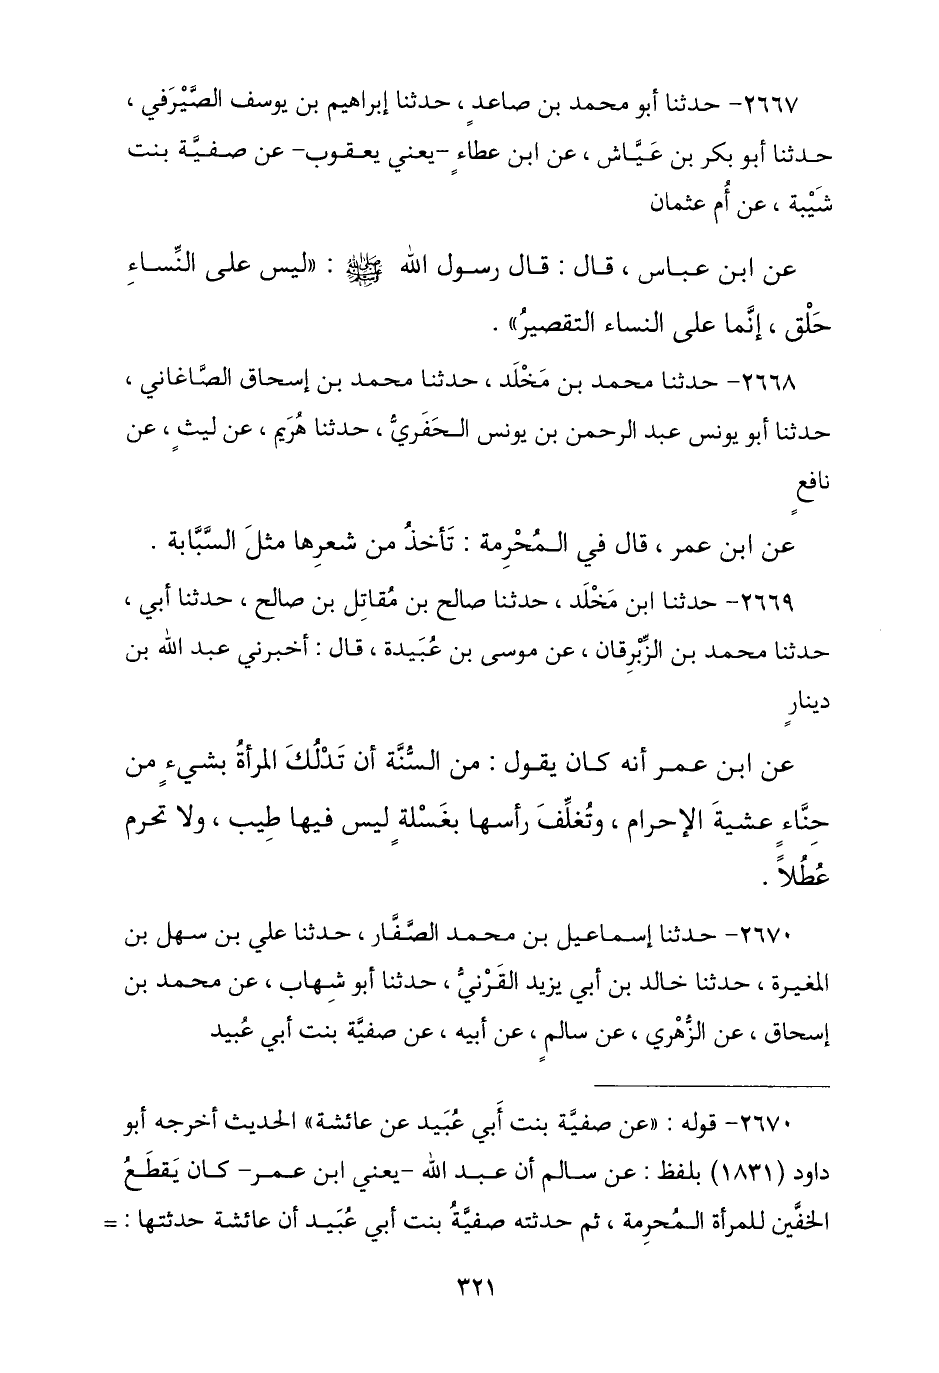 ٢٦٦٧- حدثنا أبو محمد بن صاعدٍ ، حدثنا إبراهيم بن يوسف الصَّيْرَفي ،
حدثنا أبو بكر بن عَيَّاش ، عن ابن عطاءٍ -يعني يعقوب- عن صفيَّة بنت
شَيْبة ، عن أُم عثمان
عن ابن عباس ، قال : قال رسول الله ﷺ : «ليس على النِّساءِ
حَلْق ، إنَّما على النساء التقصيرُ» .
٢٦٦٨- حدثنا محمد بن مَخْلَد ، حدثنا محمد بن إسحاق الصَّاغاني ،
حدثنا أبو يونس عبد الرحمن بن يونس الحَفَريُّ ، حدثنا هُرَيم ، عن ليثٍ ، عن
نافعٍ
عن ابن عمر ، قال في المُحْرِمة : تَأخذُ من شعرِها مثلَ السَّبَّابة .
٢٦٦٩- حدثنا ابن مَخْلَد ، حدثنا صالح بن مُقاتِل بن صالح ، حدثنا أبي ،
حدثنا محمد بن الزِّبْرِقان ، عن موسى بن عُبَيدة ، قال : أخبرني عبد الله بن
دينارٍ
عن ابن عمر أنه كان يقول : من السُّنَّة أن تَدْلُكَ المرأةُ بشيءٍ من
حِنَّاءٍ عشيةَ الإحرام ، وتُغلِّفَ رأسها بغَسْلةٍ ليس فيها طِيب ، ولا تحرم
عُطُلاً .
٢٦٧٠- حدثنا إسماعيل بن محمد الصَّفَّار ، حدثنا علي بن سهل بن
المغيرة ، حدثنا خالد بن أبي يزيد القَرْنيُّ ، حدثنا أبو شِهاب ، عن محمد بن
إسحاق ، عن الزُّهْري ، عن سالمٍ ، عن أبيه ، عن صفيَّة بنت أبي عُبيد
٢٦٧٠- قوله : «عن صفيَّة بنت أَبي عُبَيد عن عائشة» الحديث أخرجه أبو
داود (١٨٣١) بلفظ : عن سالم أن عبد الله -يعني ابن عمر- كان يَقطَعُ
الخفَّين للمرأة المُحرِمة ، ثم حدثته صفيَّةُ بنت أبي عُبَيد أن عائشة حدثتها : =
٣٢١